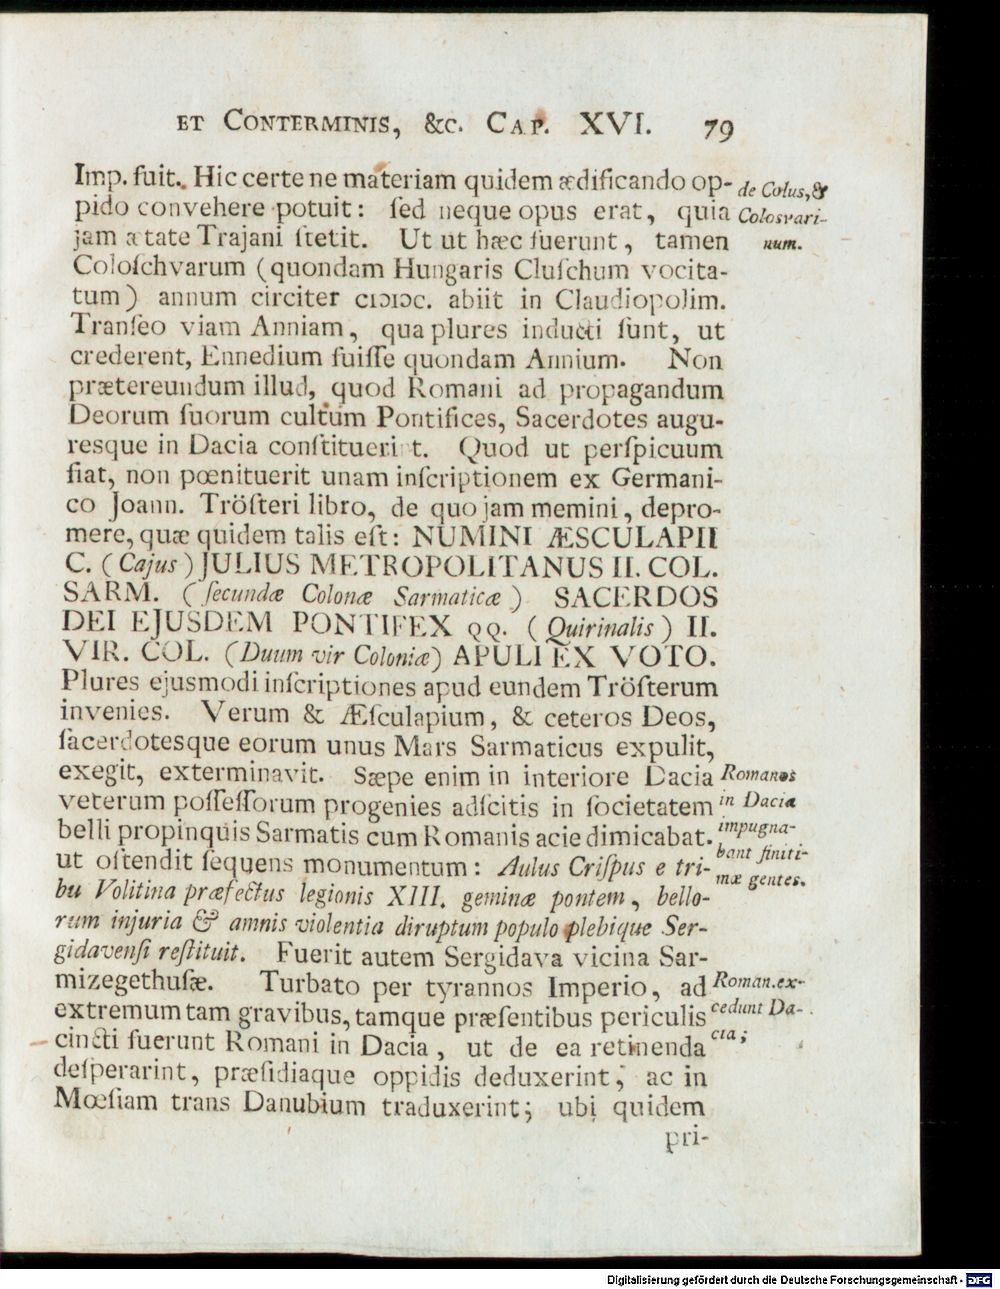 ET CONTERMINIS, &c. CAP. XVI. 79
Imp. fuit. Hic certe ne materiam quidem ædificando op-
de Colus, &
pido convehere potuit: ſed neque opus erat, quia
Colosvari-
jam ætate Trajani ſtetit. Ut ut hæc fuerunt, tamen
num.
Coloſchvarum (quondam Hungaris Cluſchum vocita-
tum) annum circiter cıↄıↄc. abiit in Claudiopolim.
Tranſeo viam Anniam, qua plures inducti ſunt, ut
crederent, Ennedium fuiſſe quondam Annium. Non
prætereundum illud, quod Romani ad propagandum
Deorum ſuorum cultum Pontifices, Sacerdotes augu-
resque in Dacia conſtituerint. Quod ut perſpicuum
fiat, non pœnituerit unam inſcriptionem ex Germani-
co Joann. Tröſteri libro, de quo jam memini, depro-
mere, quæ quidem talis eſt: NUMINI ÆSCULAPII
C. (Cajus) JULIUS METROPOLITANUS II. COL.
SARM. (ſecundæ Colonæ Sarmaticæ) SACERDOS
DEI EJUSDEM PONTIFEX QQ. (Quirinalis) II.
VIR. COL. (Duum vir Coloniæ) APULI EX VOTO.
Plures ejusmodi inſcriptiones apud eundem Tröſterum
invenies. Verum & Æſculapium, & ceteros Deos,
ſacerdotesque eorum unus Mars Sarmaticus expulit,
exegit, exterminavit. Sæpe enim in interiore Dacia
Romanos
veterum poſſeſſorum progenies adſcitis in ſocietatem
in Dacia
belli propinquis Sarmatis cum Romanis acie dimicabat.
impugna-
ut oſtendit ſequens monumentum: Aulus Criſpus e tri-
bant finiti-
bu Volitina præfectus legionis XIII. geminæ pontem, bello-
mæ gentes.
rum injuria & amnis violentia diruptum populo plebique Ser-
gidavenſi reſtituit. Fuerit autem Sergidava vicina Sar-
mizegethuſæ. Turbato per tyrannos Imperio, ad
Roman. ex-
extremum tam gravibus, tamque præſentibus periculis
cedunt Da-
cincti fuerunt Romani in Dacia, ut de ea retinenda
cia;
deſperarint, præſidiaque oppidis deduxerint, ac in
Mœſiam trans Danubium traduxerint; ubi quidem
pri-
Digitalisierung gefördert durch die Deutsche Forschungsgemeinschaft - DFG